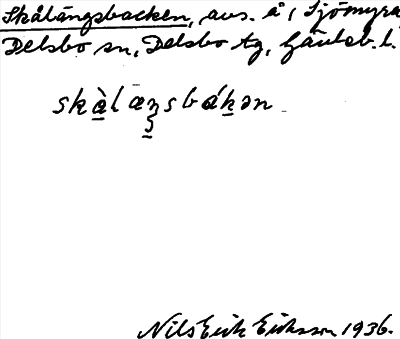 Skålängsbacken, avs. å, Sjömyra
Delsbo sn, Delsbo tg, Gävleb. l.
skàlæŋsbákən
Nils Erik Eriksson 1936.